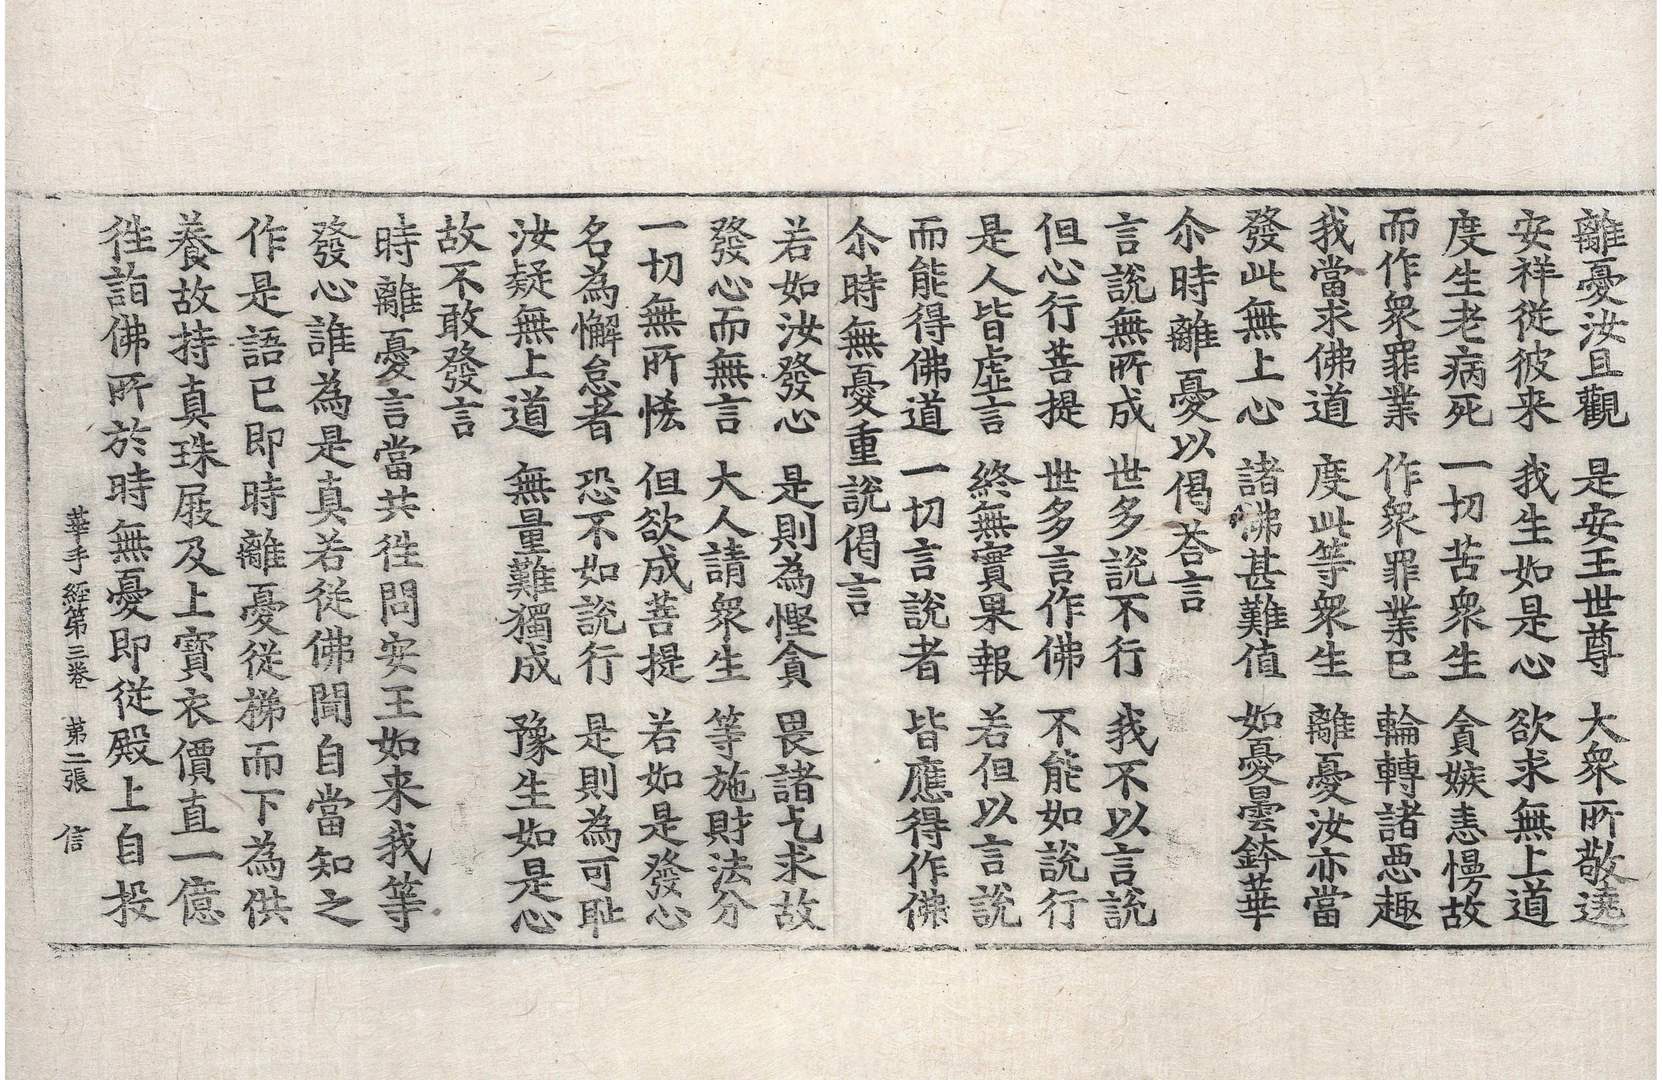 離憂汝且觀　是安王世尊　大衆所敬遶
安祥從彼来　我生如是心　欲求無上道
度生老病死　一切苦衆生　貪嫉恚慢故
而作衆罪業　作衆罪業已　輪轉諸惡趣
我當求佛道　度此等衆生　離憂汝亦當
發此無上心　諸佛甚難值　如憂曇鉢華
尒時離憂以偈荅言
言說無所成　世多說不行　我不以言說
但心行菩提　世多言作佛　不能如說行
是人皆虛言　終無實果報　若但以言說
而能得佛道　一切言說者　皆應得作佛
尒時無憂重說偈言
若如汝發心　是則為慳貪　畏諸乞求故
發心而無言　大人請衆生　等施財法分
一切無所悋　但欲成菩提　若如是發心
名為懈怠者　恐不如說行　是則為可耻
汝疑無上道　無量難獨成　豫生如是心
故不敢發言
時離憂言當共徃問安王如来我等
發心誰為是真若從佛聞自當知之
作是語已即時離憂從梯而下為供
養故持真珠屐及上寶衣價直一億
徃詣佛所於時無憂即從殿上自投
華手經第三卷　第二張　信